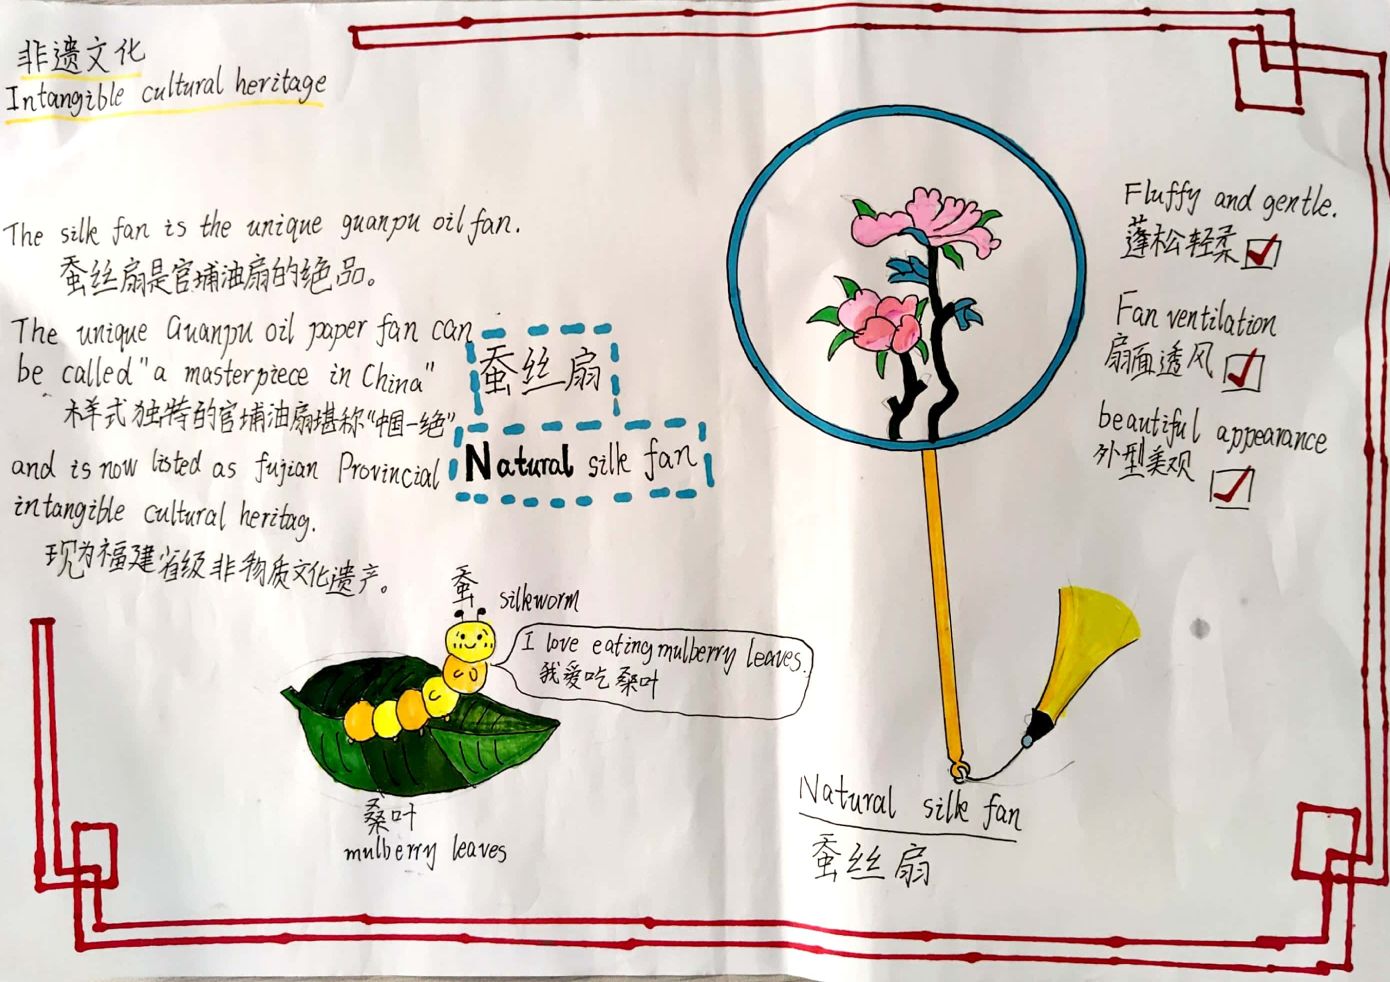 非遗文化
Intangible cultural heritage
The silk fan is the unique guanpu oil fan.
蚕丝扇是官埔油扇的绝品。
The unique Guanpu oil paper fan can
be called "a masterpiece in China"
样式独特的官埔油扇堪称“中国一绝”
and is now listed as fujian Provincial
intangible cultural heritag.
现为福建省级非物质文化遗产。
蚕丝扇
Natural silk fan
蚕
silkworm
I love eating mulberry leaves.
我爱吃桑叶
桑叶
mulberry leaves
Fluffy and gentle.
蓬松轻柔
Fan ventilation
扇面透风
beautiful appearance
外型美观
Natural silk fan
蚕丝扇